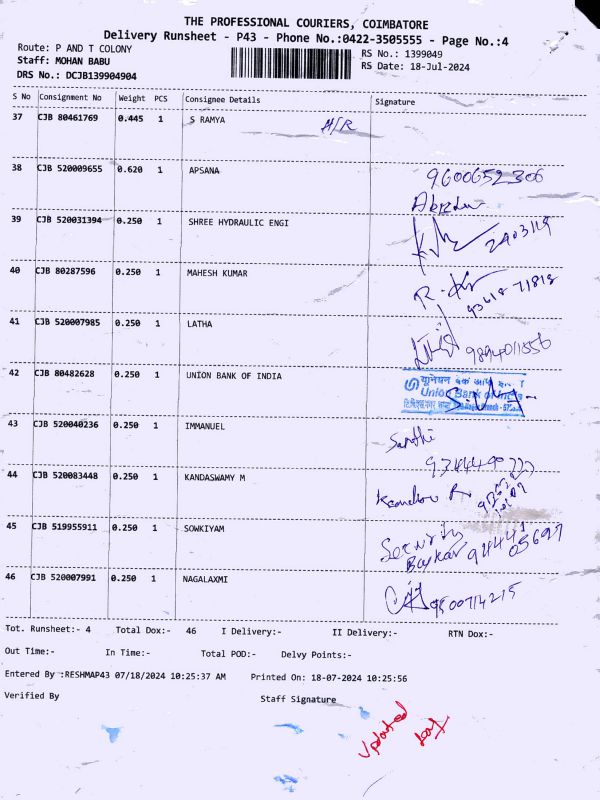 THE PROFESSIONAL COURIERS, COIMBATORE
Delivery Runsheet - P43 - Phone No.:0422-3505555 - Page No.:4
Route: P AND T COLONY
RS No.: 1399049
Staff: MOHAN BABU
RS Date: 18-Jul-2024
DRS No.: DCJB139904904
S No Consignment No Weight PCS Consignee Details Signature
37 CJB 80461769 0.445 1 S RAMYA
38 CJB 520009655 0.620 1 APSANA 9600652306
39 CJB 520031394 0.250 1 SHREE HYDRAULIC ENGI
40 CJB 80287596 0.250 1 MAHESH KUMAR
41 CJB 520007985 0.250 1 LATHA 9894011556
42 CJB 80482628 0.250 1 UNION BANK OF INDIA
Union Bank of India
43 CJB 520040236 0.250 1 IMMANUEL Santhi
44 CJB 520083448 0.250 1 KANDASWAMY M
45 CJB 519955911 0.250 1 SOWKIYAM Security
46 CJB 520007991 0.250 1 NAGALAXMI 9500714215
Tot. Runsheet:- 4 Total Dox:- 46 I Delivery:- II Delivery:- RTN Dox:-
Out Time:- In Time:- Total POD:- Delvy Points:-
Entered By :RESHMAP43 07/18/2024 10:25:37 AM Printed On: 18-07-2024 10:25:56
Verified By Staff Signature
Updated